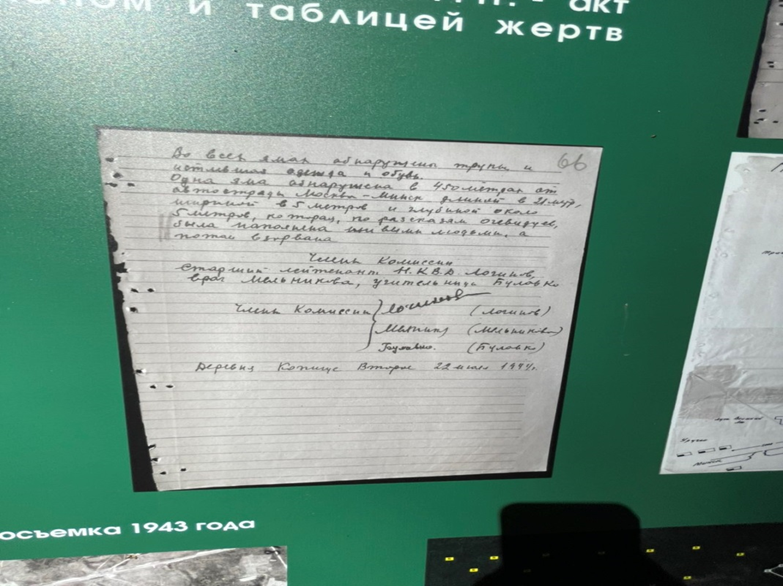 акт
и таблицей жертв
66
Во всех ямах обнаружены трупы и
истлевшая одежда и обувь.
Одна яма обнаружена в 450 метрах от
автострады Москва-Минск длиной в
шириной в 5 метров и глубиной около
5 метров, которая, по рассказам очевидцев,
была наполнена живыми людьми, а
потом взорвана
Члены Комиссии
Старший лейтенант Н.К.В.Д. Логинов,
врач Мельникова, учительница Буловко
Члены Комиссии
(Логинов)
(Мельникова)
(Буловко)
Деревня Копище Второе 22 июля 1944г.
осъемка 1943 года